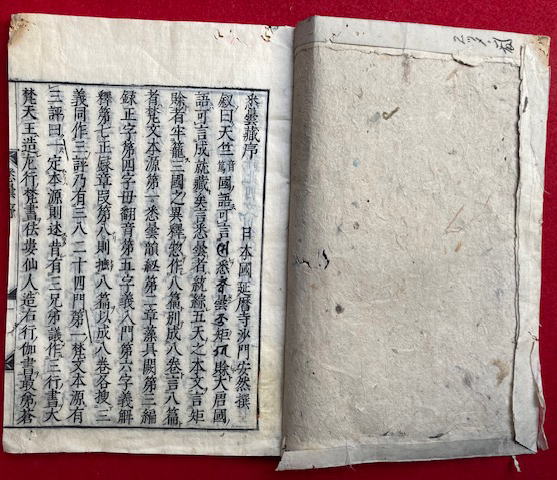 悉曇藏序 日本國延曆寺沙門安然撰
叙曰天竺音篤國語可言悉曇矩賒大唐國
語可言成就藏矣言悉曇者就綜五天之本文言矩
賒者牢籠三國之異釋惣作八篇別成八卷言八篇
者梵文本源第一悉曇韻紐第二章藻具闕第三編
録正字第四字母翻音第五字義入門第六字義解
釋第七正録章段第八則攡八篇以成八卷各搜三
義同作三評乃有三八二十四門第一梵文本源有
三評曰一定本源則述昔有三兄弟議作三行書大
梵天王造左行梵書佉婁仙人造右行伽書最弟蒼